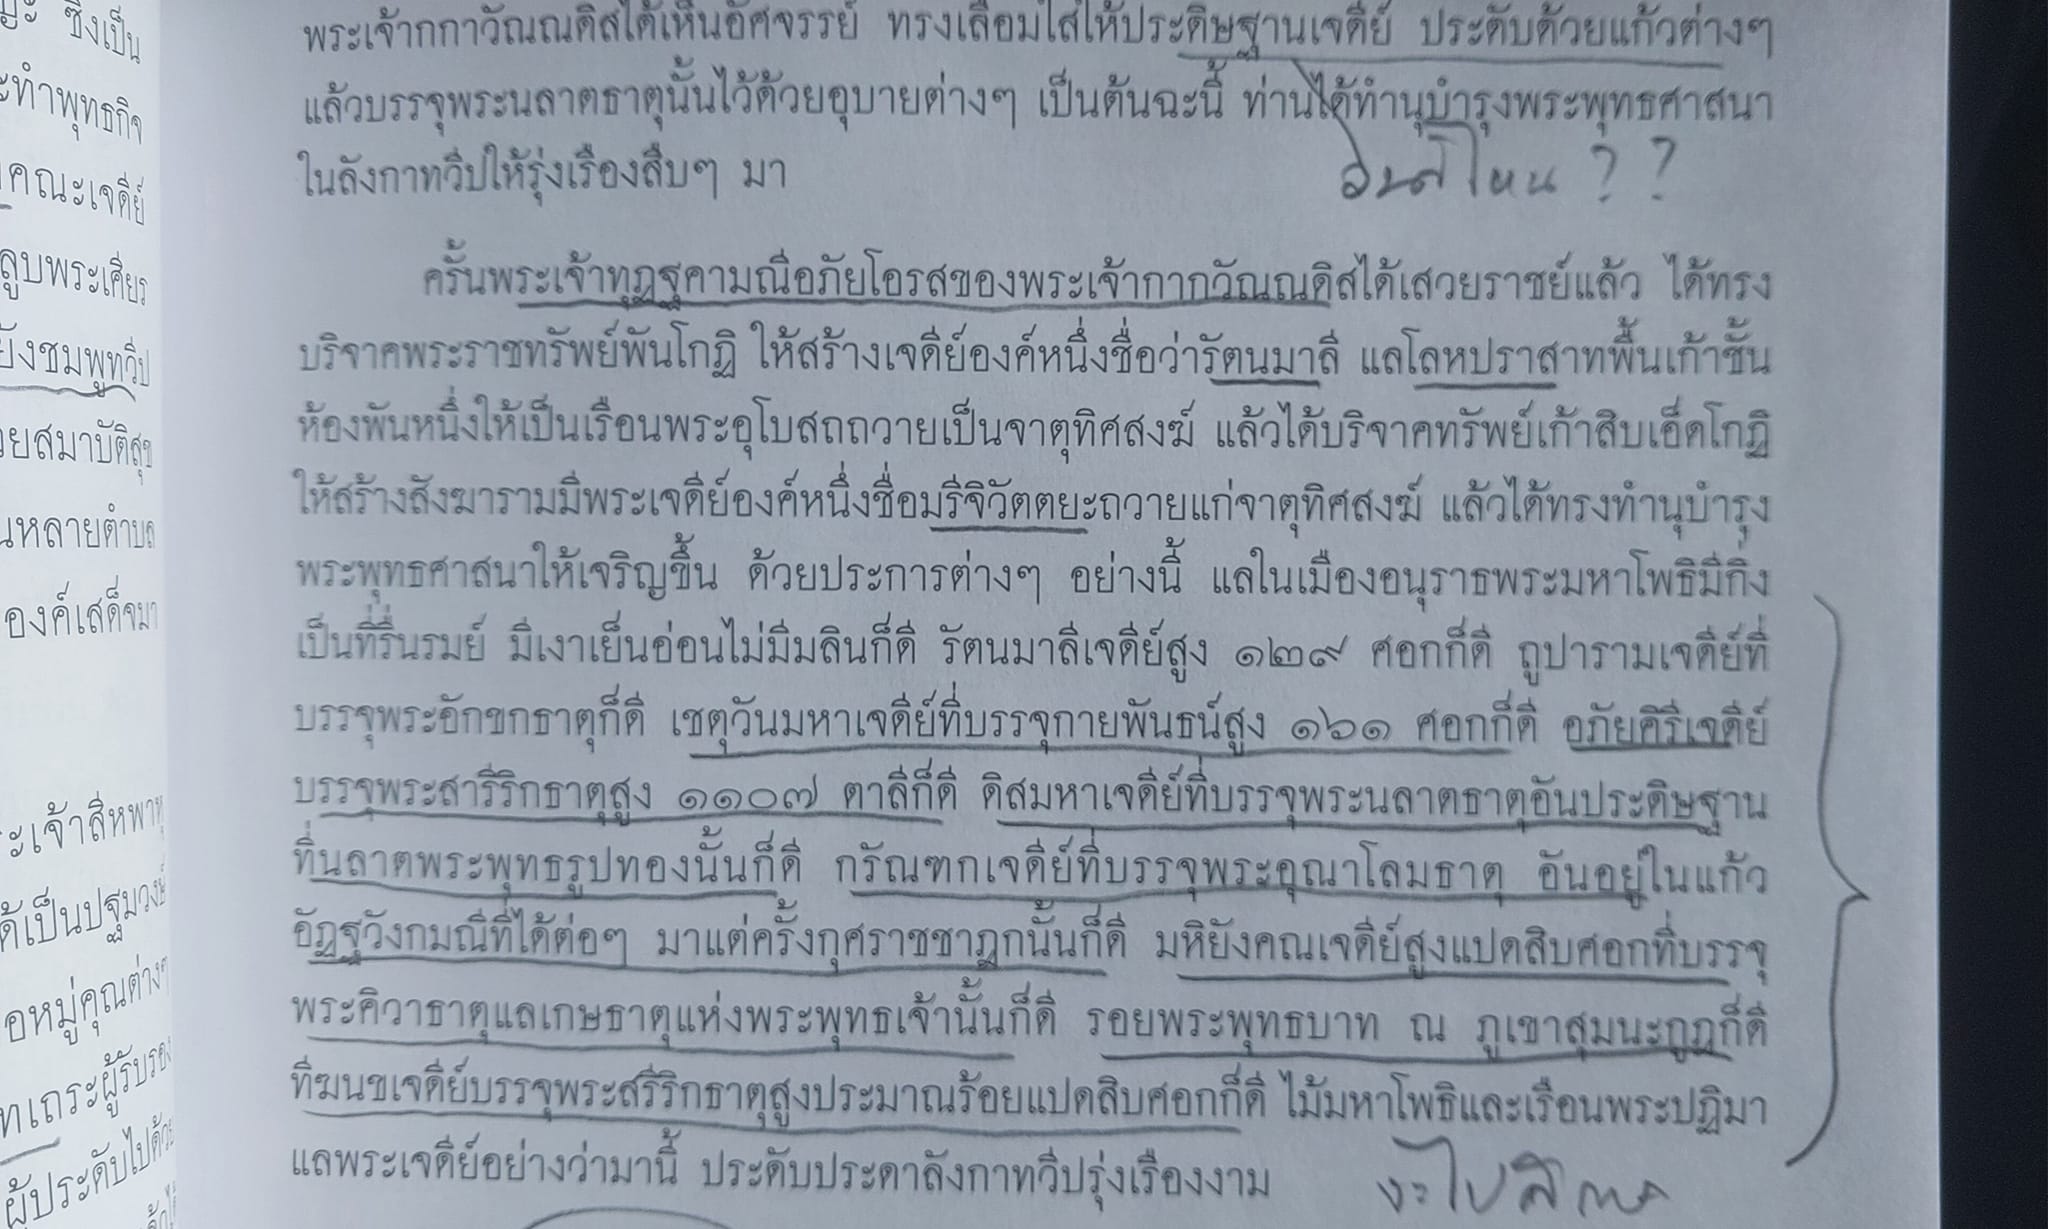 ะ ซึ่งเป็น
ะทำพุทธกิจ
คณะเจดีย์
ลูบพระเศียร
ยังชมพูทวีป
วยสมาบัติสุข
นหลายตำบล
องค์เสด็จมา
ะเจ้าสีหพาหุ
ด้เป็นปฐมวงษ์
อหมู่คุณต่างๆ
ทเถระผู้รับรอง
ผู้ประดับไปด้วย
พระเจ้ากกาวัณณดิสได้เห็นอัศจรรย์ ทรงเลื่อมใสให้ประดิษฐานเจดีย์ ประดับด้วยแก้วต่างๆ
แล้วบรรจุพระนลาตธาตุนั้นไว้ด้วยอุบายต่างๆ เป็นต้นฉะนี้ ท่านได้ทำนุบำรุงพระพุทธศาสนา
ในลังกาทวีปให้รุ่งเรืองสืบๆ มา
ไหน ? ?
ครั้นพระเจ้าทุฏฐคามณีอภัยโอรสของพระเจ้ากากวัณณดิสได้เสวยราชย์แล้ว ได้ทรง
บริจาคพระราชทรัพย์พันโกฏิ ให้สร้างเจดีย์องค์หนึ่งชื่อว่ารัตนมาลี แลโลหปราสาทพื้นเก้าชั้น
ห้องพันหนึ่งให้เป็นเรือนพระอุโบสถถวายเป็นจาตุทิศสงฆ์ แล้วได้บริจาคทรัพย์เก้าสิบเอ็ดโกฏิ
ให้สร้างสังฆารามมีพระเจดีย์องค์หนึ่งชื่อมรีจิวัตตยะถวายแก่จาตุทิศสงฆ์ แล้วได้ทรงทำนุบำรุง
พระพุทธศาสนาให้เจริญขึ้น ด้วยประการต่างๆ อย่างนี้ แลในเมืองอนุราธพระมหาโพธิมีกิ่ง
เป็นที่รื่นรมย์ มีเงาเย็นอ่อนไม่มีมลินก็ดี รัตนมาลีเจดีย์สูง ๑๒๙ ศอกก็ดี ถูปารามเจดีย์ที่
บรรจุพระอักขกธาตุก็ดี เชตุวันมหาเจดีย์ที่บรรจุกายพันธน์สูง ๑๖๑ ศอกก็ดี อภัยคิรีเจดีย์
บรรจุพระสารีริกธาตุสูง ๑๑๐๗ ตาลีก็ดี ดิสมหาเจดีย์ที่บรรจุพระนลาตธาตุอันประดิษฐาน
ที่นลาตพระพุทธรูปทองนั้นก็ดี กรัณฑกเจดีย์ที่บรรจุพระอุณาโลมธาตุ อันอยู่ในแก้ว
อัฏฐวังกมณีที่ได้ต่อๆ มาแต่ครั้งกุศราชชาฎกนั้นก็ดี มหิยังคณเจดีย์สูงแปดสิบศอกที่บรรจุ
พระคิวาธาตุแลเกษธาตุแห่งพระพุทธเจ้านั้นก็ดี รอยพระพุทธบาท ณ ภูเขาสุมนะกูฏก็ดี
ทีฆนขเจดีย์บรรจุพระสรีริกธาตุสูงประมาณร้อยแปดสิบศอกก็ดี ไม้มหาโพธิและเรือนพระปฏิมา
แลพระเจดีย์อย่างว่ามานี้ ประดับประดาลังกาทวีปรุ่งเรืองงาม
จะไป